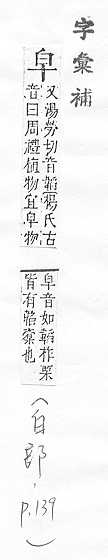 字彙補
皁
又湯勞切音韜楊氏古
音曰周禮植物宜皁物
皁音如韜柞栗
皆有韜䆮也
(白部,
p.139
)